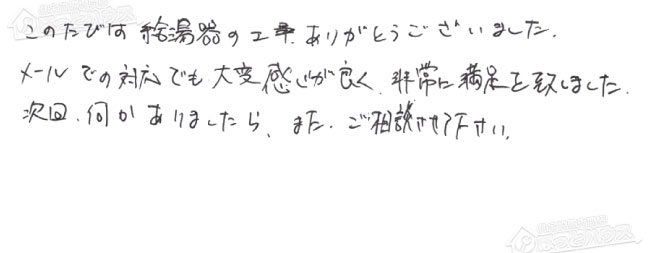 このたびは給湯器の工事、ありがとうございました。
メールでの対応でも大変感じが良く、非常に満足を致しました。
次回、何かありましたら、また、ご相談させて下さい。